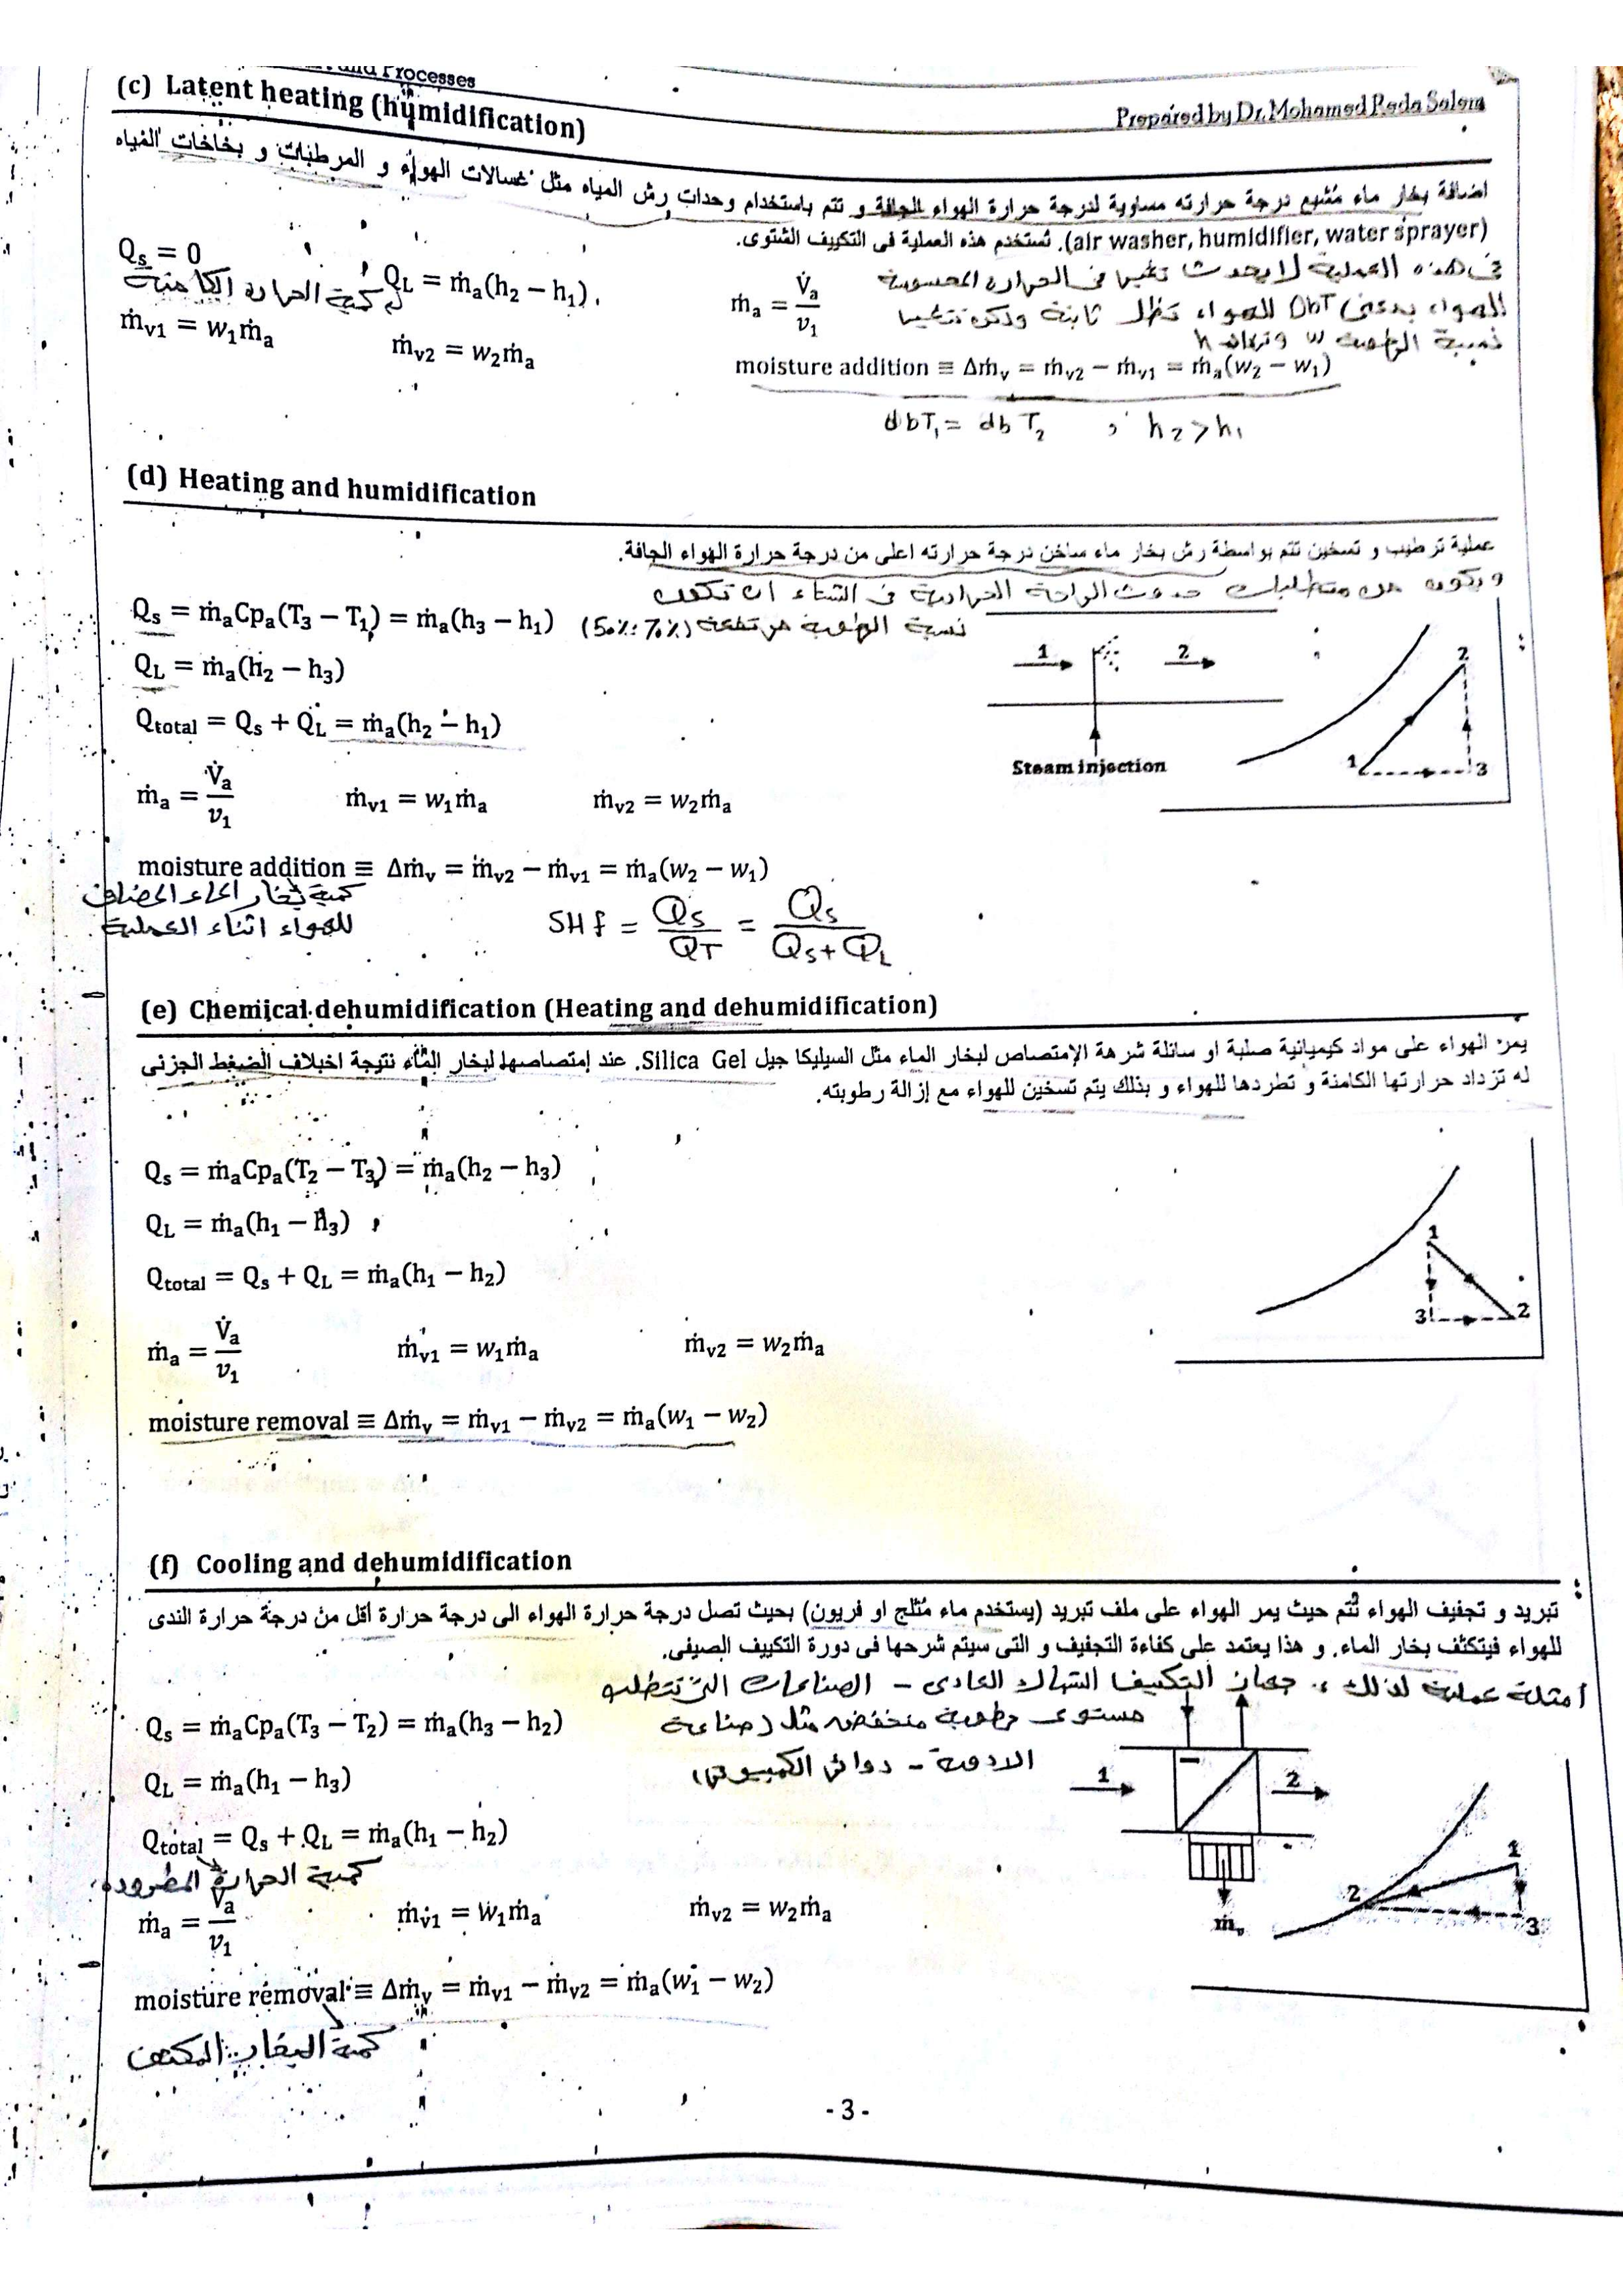 and Processes
Prepared by Dr. Mohamed Reda Salem
(c) Latent heating (humidification)
اضافة بخار ماء مُشبع درجة حرارته مساوية لدرجة حرارة الهواء الجافة و تتم باستخدام وحدات رش المياه مثل غسالات الهواء و المرطبات و بخاخات المياه
(air washer, humidifier, water sprayer). تستخدم هذه العملية فى التكييف الشتوى.
فى هذه العملية لا يحدث تغير فى الحرارة المحسوسة
للهواء بمعنى DbT للهواء تظل ثابتة
نسبة الرطوبة w h
Qs = 0
QL = ṁa(h2 − h1)
كمية الحرارة الكامنة
ṁa = V̇a / v1
ṁv1 = w1ṁa
ṁv2 = w2ṁa
moisture addition ≡ Δṁv = ṁv2 − ṁv1 = ṁa(w2 − w1)
dbT1 = dbT2 , h2 > h1
(d) Heating and humidification
عملية ترطيب و تسخين تتم بواسطة رش بخار ماء ساخن درجة حرارته اعلى من درجة حرارة الهواء الجافة.
ويكون من متطلبات حدوث الراحة الحرارية فى الشتاء ان تكون
نسبة الرطوبة مرتفعة (50% : 70%)
Qs = ṁaCpa(T3 − T1) = ṁa(h3 − h1)
QL = ṁa(h2 − h3)
Qtotal = Qs + QL = ṁa(h2 − h1)
1 2
Steam injection
2
1 3
ṁa = V̇a / v1 ṁv1 = w1ṁa ṁv2 = w2ṁa
moisture addition ≡ Δṁv = ṁv2 − ṁv1 = ṁa(w2 − w1)
كمية بخار الماء المضاف
للهواء اثناء العملية
SHf = Qs / QT = Qs / (Qs + QL)
(e) Chemical dehumidification (Heating and dehumidification)
يمر الهواء على مواد كيميائية صلبة او سائلة شرهة الإمتصاص لبخار الماء مثل السيليكا جيل Silica Gel. عند إمتصاصها لبخار الماء نتيجة اختلاف الضغط الجزئى
له تزداد حرارتها الكامنة و تطردها للهواء و بذلك يتم تسخين للهواء مع إزالة رطوبته.
Qs = ṁaCpa(T2 − T3) = ṁa(h2 − h3)
QL = ṁa(h1 − h3)
Qtotal = Qs + QL = ṁa(h1 − h2)
1
3 2
ṁa = V̇a / v1 ṁv1 = w1ṁa ṁv2 = w2ṁa
moisture removal ≡ Δṁv = ṁv1 − ṁv2 = ṁa(w1 − w2)
(f) Cooling and dehumidification
تبريد و تجفيف الهواء تتم حيث يمر الهواء على ملف تبريد (يستخدم ماء مُثلج او فريون) بحيث تصل درجة حرارة الهواء الى درجة حرارة أقل من درجة حرارة الندى
للهواء فيتكثف بخار الماء. و هذا يعتمد على كفاءة التجفيف و التى سيتم شرحها فى دورة التكييف الصيفى.
أمثلة عملية لذلك : جهاز التكييف الشباك العادى - الصناعات التى تتطلب
مستوى رطوبة منخفض مثل (صناعة
الادوية - دوائر الكمبيوتر)
Qs = ṁaCpa(T3 − T2) = ṁa(h3 − h2)
QL = ṁa(h1 − h3)
Qtotal = Qs + QL = ṁa(h1 − h2)
كمية الحرارة المطرودة
1 2
ṁv
1
2 3
ṁa = V̇a / v1 ṁv1 = w1ṁa ṁv2 = w2ṁa
moisture removal ≡ Δṁv = ṁv1 − ṁv2 = ṁa(w1 − w2)
كمية البخار المكثف
- 3 -